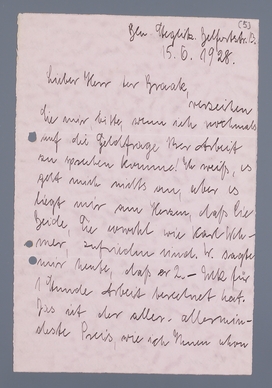 (5)
Bln. Steglitz. Belfortstr. 13.
15.6.1928.
Lieber Herr ter Braak,
verzeihen
Sie mir bitte, wenn ich nochmals
auf die Geldfrage Ihrer Arbeit
zu sprechen komme! Ich weiß, es
geht mich nichts an, aber es
liegt mir am Herzen, daß Sie
Beide, Sie sowohl wie Karl
zufrieden sind. Er sagte
mir heute, daß er 2.- Mk für
1 Stunde Arbeit berechnet hat.
Das ist der aller-allermin-
deste Preis, wie ich Ihnen schon